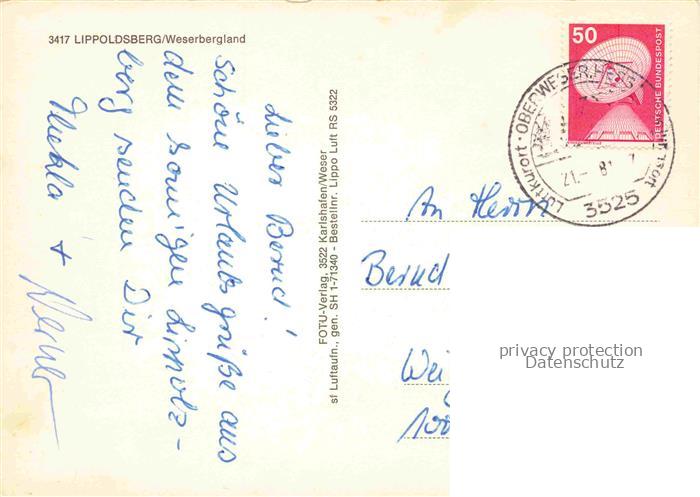 3417 LIPPOLDSBERG/Weserbergland
Lieber Bernd!
Schöne Urlaubsgrüße aus
dem sonnigen Lippolds-
berg senden Dir
Thekla + Werner
FOTU-Verlag, 3522 Karlshafen/Weser
sf Luftaufn., gen. SH 1-71340 - Bestellnr. Lippo Luft RS 5322
50
DEUTSCHE BUNDESPOST
Luftkurort · OBERWESER, HESS
21.-
3525
An Herrn
Bernd
Wei
100
privacy protection
Datenschutz